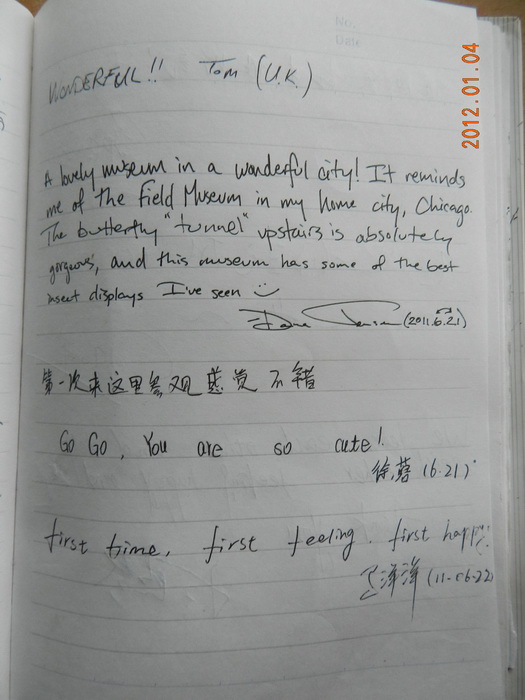 No.
Date
2012.01.04
WONDERFUL!! Tom (U.K.)
A lovely museum in a wonderful city! It reminds
me of the Field Museum in my home city, Chicago.
The butterfly "tunnel" upstairs is absolutely
gorgeous, and this museum has some of the best
insect displays I've seen
(2011.6.21)
第一次来这里参观感觉不错
Go Go, You are so cute!
徐 (6.21)
first time, first feeling. first happy.
王洋洋 (11-06-22)